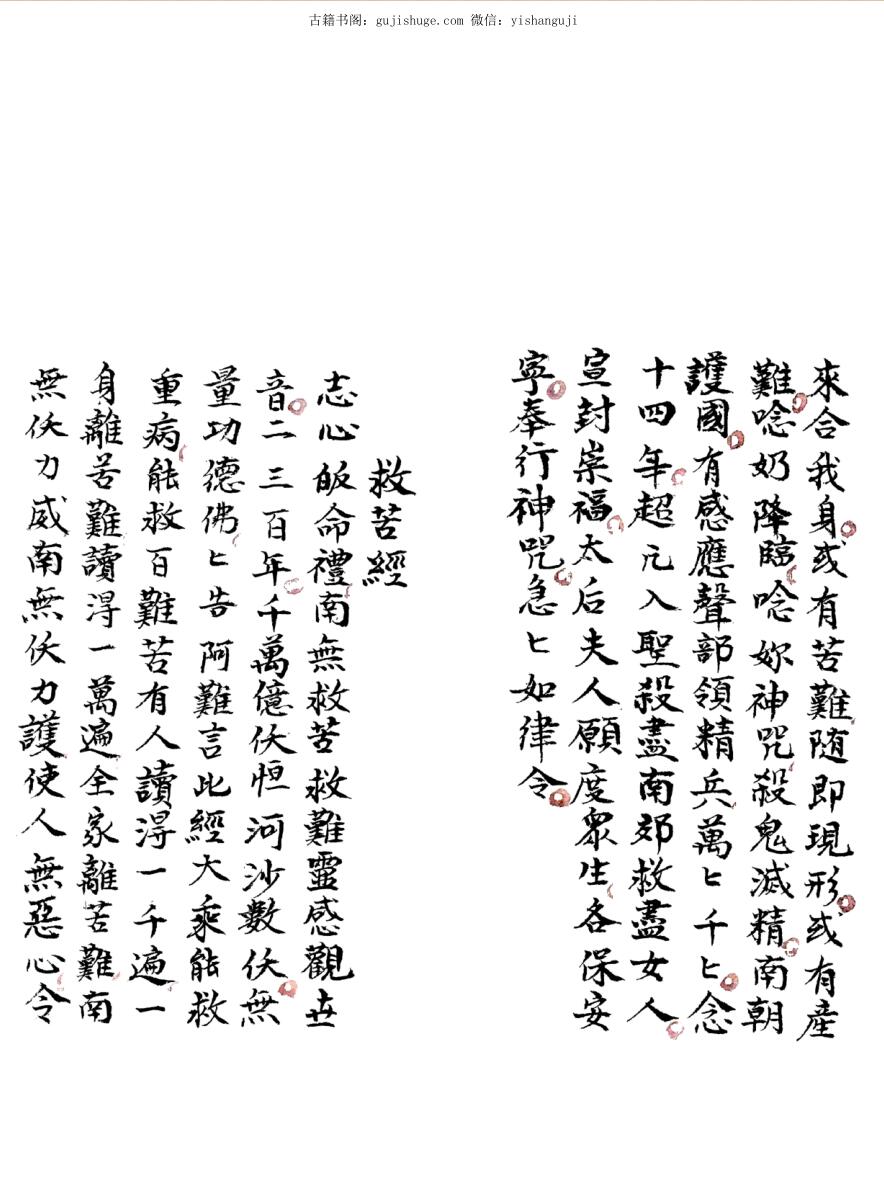 古籍书阁：gujishuge.com 微信：yishanguji
來合我身或有苦難随即現形或有産
難唸奶降臨唸妳神咒殺鬼滅精南朝
護國有感應聲部領精兵萬匕千匕念
十四年超凢入聖殺盡南郊救盡女人
宣封崇福太后夫人願度衆生各保安
寜奉行神咒急匕如律令
救苦經
志心皈命禮南無救苦救難靈感觀世
音二三百年千萬億伏恒河沙數伏無
量功德佛匕告阿難言此經大乘能救
重病能救百難苦有人讀淂一千遍一
身離苦難讀淂一萬遍全家離苦難南
無伏力威南無伏力護使人無惡心令